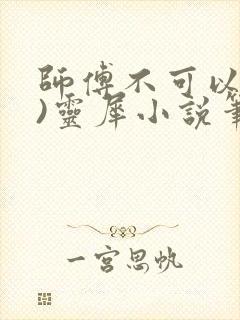 師傅不可以
)靈犀小說筆
一宮思帆